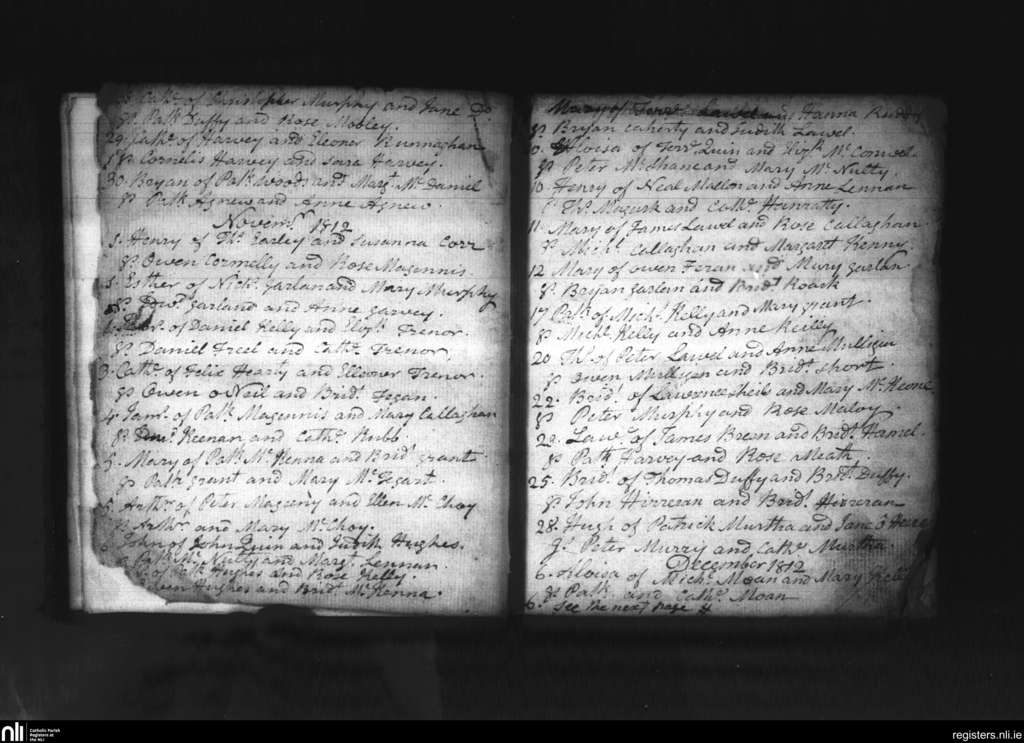 Cathe. of Christopher Murphy and Jane Do.
Sp. Patk. Duffy and Rose Mobley.
29. of Harvey and Eleoner Runnaghan
Sp. Cornelis Harvey and Sara Harvey.
30. Bryan of Patk. Woods and Margt. Mc.Daniel
Sp. Patk. Agnew and Anne Agnew.
Novemr. 1812
1. Henry of Ths. Earley and Susanna Corr
Sp. Owen Cormelly and Rose Magennis.
Esther of Nichs. Garlan and Mary Murphy
Sp. Garland and Anne Garvey.
of Daniel Kelly and Elizh. Trenor.
Sp. Daniel Freel and Cathe. Trenor.
3. Cathe. of Felix Hearty and Eleoner Trenor.
Sp. Owen o Neil and Bridt. Fegan.
4. Jams. of Patk. Magennis and Mary Callaghan
Sp. Keenan and Cathe. Rubb.
5. Mary of Patk. Mc.Kenna and Bridt. Grant
Sp. Patk. Grant and Mary Mc.Tegart.
5. Arthr. of Peter and Ellen Mc.Choy
Sp. Arthr. and Mary Mc.Choy.
John of John Quin and Judith Hughes.
Patk. Mc.Nulty and Margt. Lennan.
of Hughes and Rose Kelly.
Hughes and Bridt. Mc.Kenna.
Mary of Lawel and Hanna Ruddy
Sp. Bryan Caherty and Judith Lawel.
Eloisa of Ferrs. Quin and Elizh. Mc.Conwel.
Sp. Peter Mc.Shane and Mary Mc.Nulty.
10. Henry of Neal Mallon and Anne Lennan
Ths. Magurk and Cathe. Hanratty.
11. Mary of James Lawel and Rose Callaghan.
Sp. Michl. Callaghan and Margart Kenny.
12 Mary of Owen Feran and Mary Garlan.
Sp. Bryan Garlan and Bridt. Roark
17. Patk. of Michl. Kelly and Mary Grant.
Sp. Michl. Kelly and Anne Keiley
20 Ths. of Peter Lawel and Anne Mulligin
Sp. Owen Mulligen and Bridt. Short.
22. Bridt. of Lawrence Sheils and Mary Mc.Keone
Sp. Peter Murphy and Rose Maloy.
22. Lawe. of James Brean and Bridt. Hamel.
Sp. Patk. Harvey and Rose Meath.
25. Bridt. of Thomas Duffy and Bridt. Duffy.
Sp. John Hirreran and Bridt. Hirreran
28. Hugh of Patrick Murtha and Jane
Sp. Peter Murry and Cathe. Murtha.
December 1812
6. Eloisa of Michl. Moan and Mary
Sp. Patk. and Cathe. Moan
6. See the next page
nli
Catholic Parish
Registers at
the NLI
registers.nli.ie